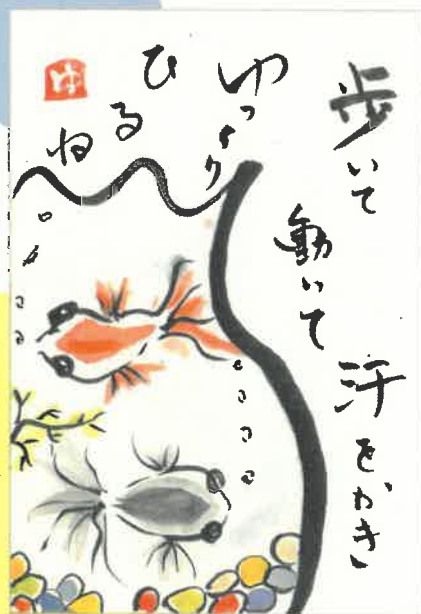 歩いて
動いて
汗をかき
ゆっくり
ひるね
は